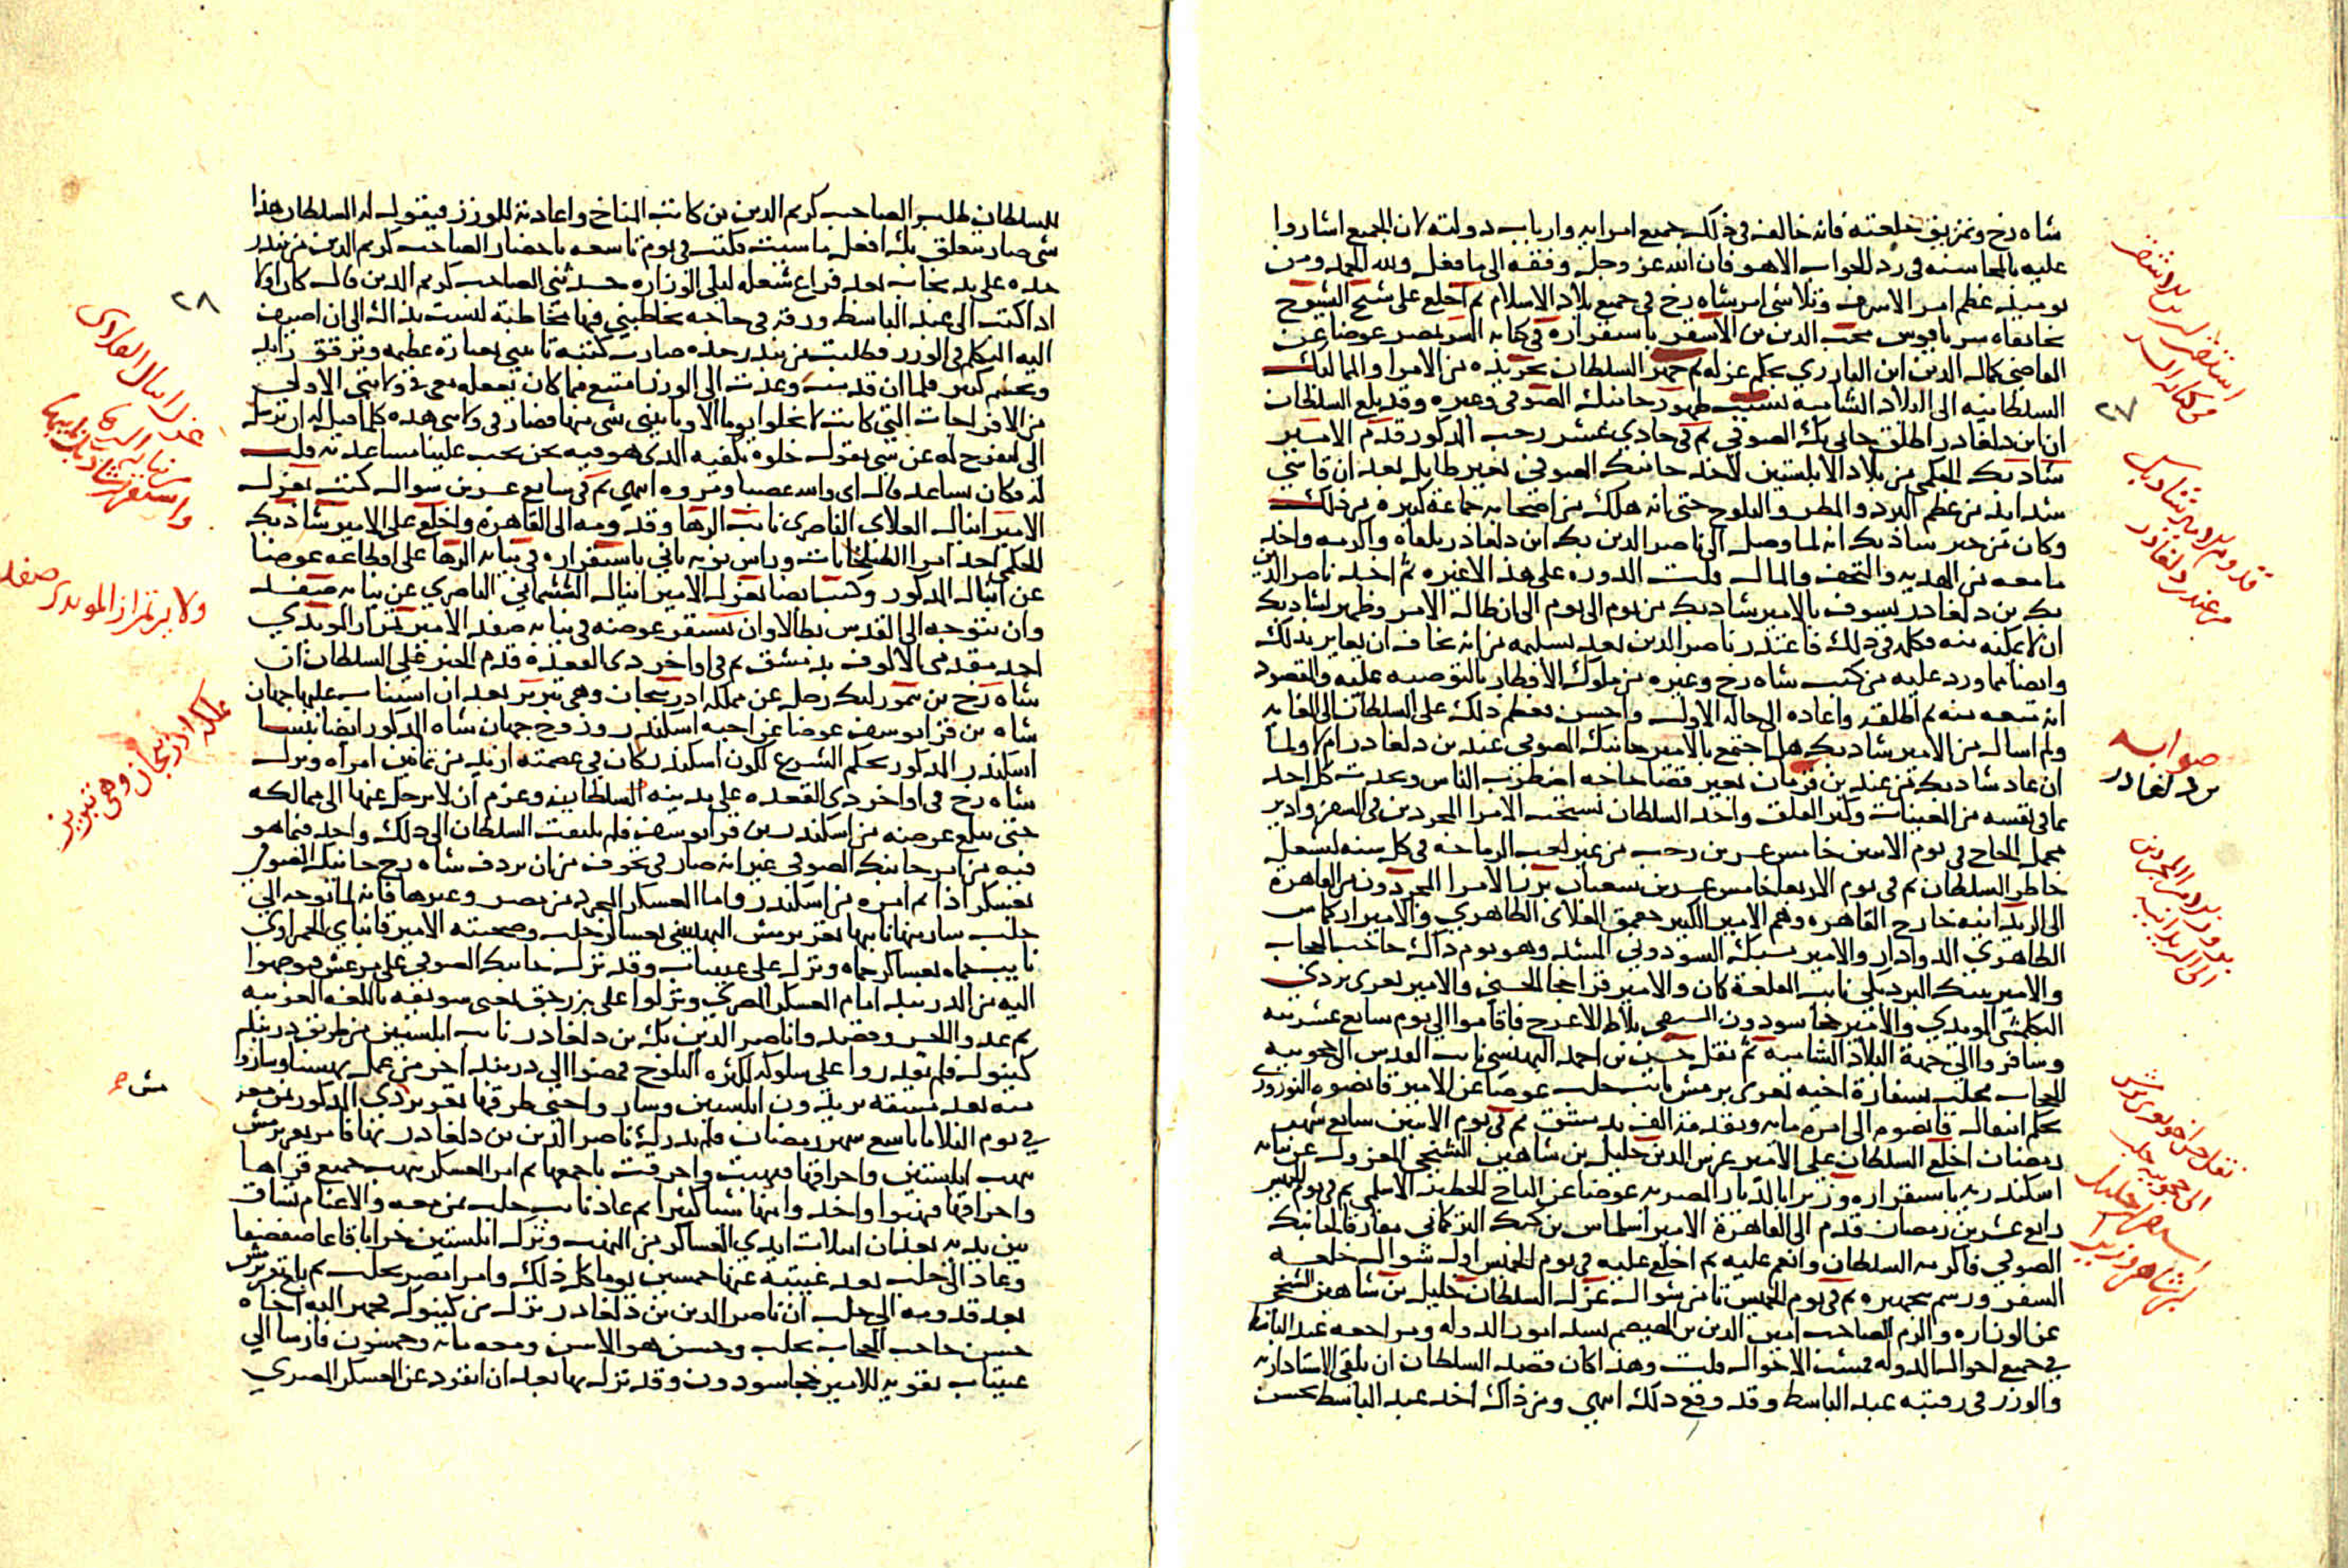 شاه رخ وتمزيق خلعته فانه خالف في ذلك جميع امرايه وارباب دولته لان الجميع اشاروا
عليه بالمحاسنه في رد الجواب الا هو فان الله عز وجل وفقه الى ما فعل ولله الحمد ومن
يوميذ عظم امر الاشرف وتلاشى امر شاه رخ في جميع بلاد الاسلام ثم اخلع على شيخ الشيوخ
بخانقاه سرياقوس محب الدين بن الاشقر باستقراره في كتابه السر بمصر عوضا عن
القاضي كمال الدين ابن البارزي بحكم عزله ثم جهز السلطان تجريده من الامرا والمماليك
السلطانيه الى البلاد الشاميه بسبب ظهور جانبك الصوفي وغيره وقد بلغ السلطان
ان ابن دلغادر اطلق جاني بك الصوفي ثم في حادي عشر رجب المذكور قدم الامير
شادبك الجكمي من بلاد الابلستين لاخذ جانبك الصوفي بغير طايل بعد ان قاسي
شدايد من عظم البرد والمطر والثلوج حتى انه هلك من اصحابه جماعة كبيره من ذلك
وكان من خبر شادبك انه لما وصل الى ناصر الدين بك ابن دلغادر تلقاه واكرمه واخذ
ما معه من الهديه والتحف والمال قلت الدوره على هذا لا غيره ثم اخذ ناصر الدين
بك بن دلغادر يسوف بالامير شادبك من يوم الى يوم الى ان طال الامر وظهر لشادبك
ان لا يمكنه منه فكلمه في ذلك فاعتذر ناصر الدين بعدم تسليمه من انه يخاف ان يعاير بذلك
وايضا مما ورد عليه من كتب شاه رخ وغيره من ملوك الاقطار بالتوصيه عليه والمقصود
انه منعه منه ثم اطلقه واعاده الى حاله الاول واحسن فعظم ذلك على السلطان الى الغايه
ولم اسال من الامير شادبك هل اجتمع بالامير جانبك الصوفي عند بن دلغادر ام لا ولما
ان عاد شادبك من عند بن قرمان بغير قضا حاجه اضطرب الناس وتحدث كل احد
بما في نفسه من المغيبات وكثر القلق واخذ السلطان يستحث الامرا المجردين في السفر وادير
محمل الحاج في يوم الاثنين خامس عشرين رجب من غير لعب الرماحه في كل سنه لشغل
خاطر السلطان ثم في يوم الاربعا خامس عشرين شعبان برز الامرا المجردون من القاهرة
الى الريدانيه خارج القاهره وهم الامير الكبير جقمق العلاي الظاهري والامير اركماس
الظاهري الدوادار والامير يشبك السودوني المشد وهو يوم ذاك حاجب الحجاب
والامير تنبك البردبكي نايب القلعة كان والامير قراخجا الحسني والامير تغري بردي
البكلمشي المويدي والامير خجا سودون السيفي بلاط الاعرج فاقاموا الى يوم سابع عشرينه
وسافروا الى جهة البلاد الشاميه ثم نقل حسن بن احمد البهسني نايب القدس الى حجوبيه
الحجاب بحلب بسفارة اخيه تغري برمش نايب حلب عوضا عن الامير قانصوه النوروزي
بحكم انتقال قانصوه الى امره مايه وتقدمة الف بدمشق ثم في يوم الاثنين سابع شهر
رمضان اخلع السلطان على الامير غرس الدين خليل بن شاهين الشيخي المعزول عن نيابه
اسكندريه باستقراره وزيرا بالديار المصريه عوضا عن التاج الخطير الاسلمي ثم في يوم الخميس
رابع عشرين رمضان قدم الى القاهرة الامير اسلماس بن كبك التركماني مفارقا لجانبك
الصوفي فاكرمه السلطان وانعم عليه ثم اخلع عليه في يوم الخميس اول شوال خلعه
السفر ورسم بتجهيزه ثم في يوم الخميس ثامن شوال عزل السلطان خليل بن شاهين الشيخي
عن الوزاره والزم الصاحب امين الدين بن الهيصم بسد امور الدوله ومراجعه عبد الباسط
في جميع احوال الدوله فمشت الاحوال قلت وهذا كان قصد السلطان ان يلقي الاستاداريه
والوزر في رقبته عبد الباسط وقد وقع ذلك انتهي ومن ذاك اخذ عبد الباسط يحسن
استقرار بن الاشقر
في كتابه السر
٢٧
قدوم الامير شادبك
من عند دلغادر
صوابه
بن دلغادر
بروز الامرا المجردين
الى الريدانيه
نقل حسن اخو تغري برمش
الى حجوبيه حلب
استقرار خليل
بن شاهين وزيرا
للسلطان طلب الصاحب كريم الدين بن كاتب المناخ واعادته للوزر فيقول له السلطان هذا
شي صار يتعلق بك افعل ما شيت فكتب في يوم تاسعه باحضار الصاحب كريم الدين من بندر
جده على يد نجاب بعد فراغ شغله ليلي الوزاره حدثني الصاحب كريم الدين قال كان اولا
اذا كتب الي عبد الباسط ورقة في حاجه يخاطبني فيها مخاطبة ليست بذاك الى ان اضيف
اليه التكلم في الوزر وطلبت من بندر جده صارت كتبه تاتيني بعبارة عظيمه وترقق زايد
وتحشم كبير فلما ان قدمت وعدت الى الوزر امتنع مما كان يفعله معي في ولايتي الاولي
من الافراجات التي كانت لا تخلوا يوما لا وياتيني شي منها فصار في ولايتي هذه كلما قيل له ان ترسل
الي لتفرج له عن شي يقول خلوه يكفيه الذي هو فيه نحن يجب علينا مساعدته قلت
له وكان يساعد قال اى والله غصبا ومروه انتهي ثم في سابع عشرين شوال كتب بعزل
الامير اينال العلاي الناصري نايب الرها وقدومه الى القاهرة واخلع على الامير شادبك
الجكمي احد امرا الطبلخانات وراس نوبه ثاني باستقراره في نيابه الرها على اقطاعه عوضا
عن اينال المذكور وكتب ايضا بعزل الامير اينال الششماني الناصري عن نيابه صفد
وان يتوجه الى القدس بطالا وان يستقر عوضه في نيابه صفد الامير تمراز المويدي
احد مقدمي الالوف بدمشق ثم في اواخر ذي القعدة قدم الخبر على السلطان ان
شاه رخ بن تمورلنك رحل عن مملكه اذربيجان وهي تبريز بعد ان استناب عليها جهان
شاه بن قرا يوسف عوضا عن اخيه اسكندر وزوج جهان شاه المذكور ايضا بنسا
اسكندر المذكور بحكم الشرع لكون اسكندر كان في عصمته ازيد من ثمانين امراة ونزل
شاه رخ في اواخر ذي القعده على مدينه السلطانيه وعزم ان لا يرحل عنها الى ممالكه
حتى يبلغ غرضه من اسكندر بن قرا يوسف فلم يلتفت السلطان الى ذلك واخذ فيما هو
فيه من امر جانبك الصوفي غير انه صار في تخوف من ان يردف شاه رخ جانبك الصوفي
بعسكر اذا تم امره من اسكندر واما العسكر المجرد من مصر وغيرها فانه لما توجه الى
حلب سار منها نايبها تغري برمش البهسني بعساكر حلب وصحبته الامير قانباي الحمزاوي
نايب حماه بعساكر حماه ونزل على عينتاب وقد نزل جانبك الصوفي على مرعش فتوجهوا
اليه من الدربند امام العسكر المصري ونزلوا على بزرجق يعني سويقه باللغه العربيه
ثم عدوا الجسر وقصدوا ناصر الدين بك بن دلغادر نايب ابلستين من طريق دربند
كينوك فلم يقدروا على سلوكه لكثره الثلوج فمضوا الى دربند اخر من عمل بهسنا وساروا
منه بعد مشقه يريدون ابلستين وسار واحتي طرقها تغري بردي المذكور بمن معه
في يوم الثلاثا تاسع شهر رمضان فلم يدرك ناصر الدين بن دلغادر بها فامر تغري برمش
بنهب ابلستين واحراقها فنهبت واحرقت باجمعها ثم امر العسكر بنهب جميع قراها
واحراقها فنهبوا واخذوا منها شيا كثيرا ثم عاد نايب حلب بمن معه والاغنام تساق
بين يديه بعد ان امتلات ايدي العساكر من النهب وترك ابلستين خرابا قاعا صفصفا
وعاد الى حلب بعد غيبته عنها خمسين يوما كل ذلك وامرا مصر بحلب ثم بلغ تغري برمش
بعد قدومه الى حلب ان ناصر الدين بن دلغادر نزل من كينوك فجهز اليه اخاه
حسن حاجب الحجاب بحلب وحسن هو الاسن ومعه مايه وخمسون فارسا الى
عينتاب تقويه للامير خجا سودون وقد نزل بها بعد ان انفرد عن العسكر المصري
٢٨
عزل اينال العلاي
من نيابه الرها
واستقرار شادبك في نيابتها
ولايه تمراز المويدي صفد
مملكه اذربيجان وهي تبريز